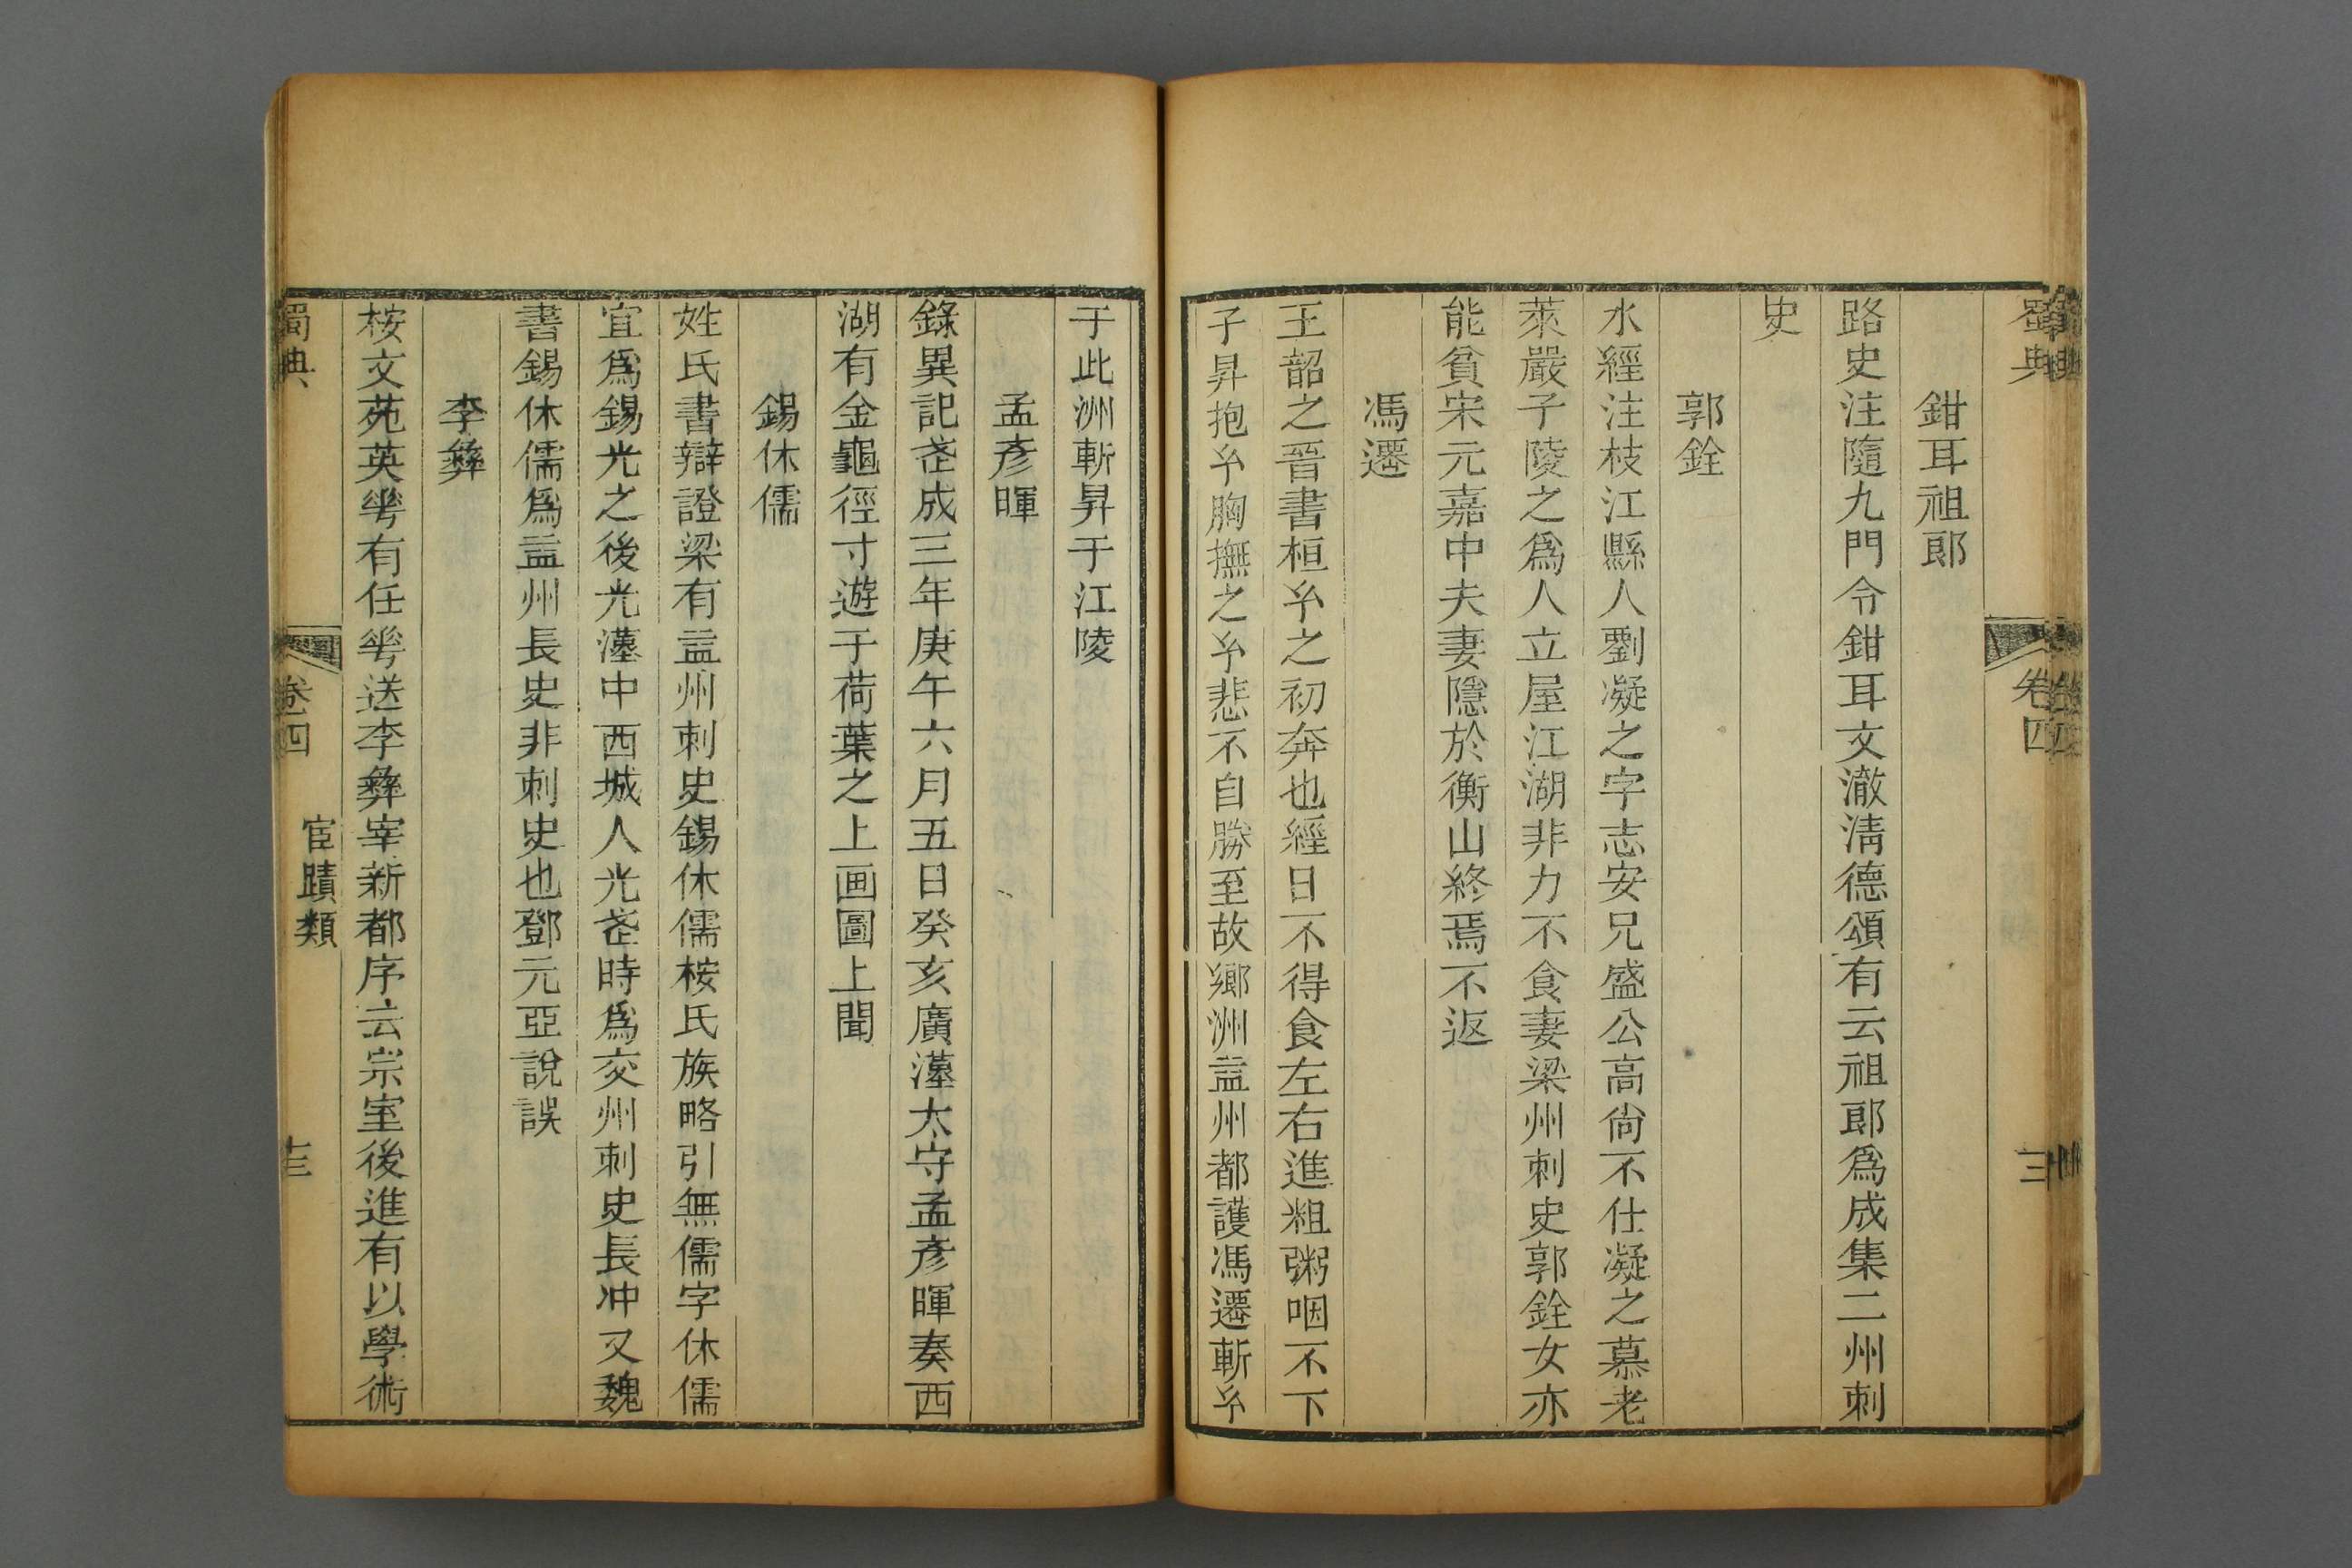 蜀典
卷四
鉗耳祖郎
路史注隨九門令鉗耳文澈清德頌有云祖郎爲成集二州刺
史
郭銓
水經注枝江縣人劉凝之字志安兄盛公高尚不仕凝之慕老
萊嚴子陵之爲人立屋江湖非力不食妻梁州刺史郭銓女亦
能貧宋元嘉中夫妻隱於衡山終焉不返
馮遷
王韶之晉書桓𢆯之初奔也經日不得食左右進粗粥咽不下
子昇抱𢆯胸撫之𢆯悲不自勝至故鄉洲益州都護馮遷斬𢆯
于此洲斬昇于江陵
孟彥暉
錄異記茬成三年庚午六月五日癸亥廣漢太守孟彥暉奏西
湖有金龜徑寸遊于荷葉之上画圖上聞
錫休儒
姓氏書辯證梁有益州刺史錫休儒桉氏族略引無儒字休儒
宜爲錫光之後光漢中西城人光茬時爲交州刺史長冲又魏
書錫休儒爲益州長史非刺史也鄧元亞說誤
李彝
桉文苑英𠌶有任𠌶送李彝宰新都序云宗室後進有以學術
蜀典
卷四
宦蹟類
十三